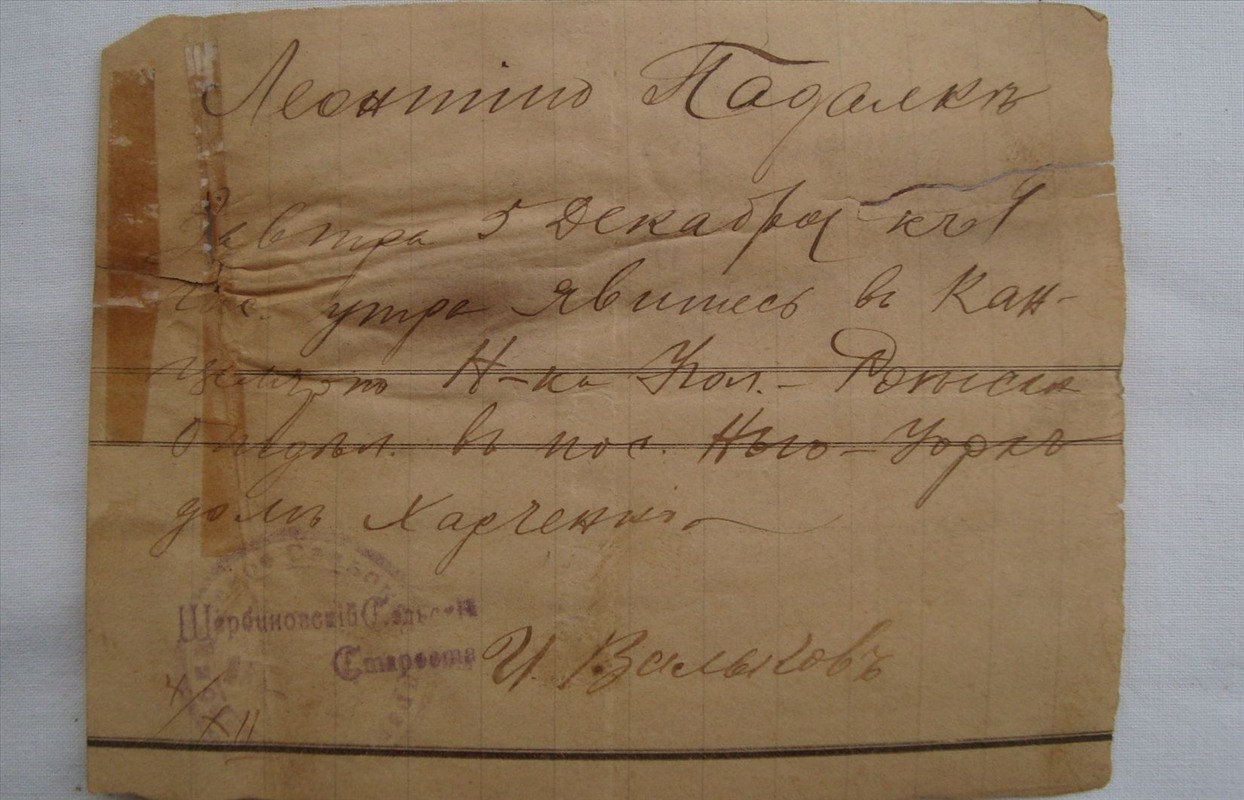 Леонтію Падалкѣ
Завтра 5 Декабря къ 9
час. утра явитесь въ Кан-
целярію Н-ка Кол.-
Отдѣл. въ пос. Нью-Йоркъ
домъ Харченко
Щербиновскій Сельскій
Староста И. Вальковъ
4/XII